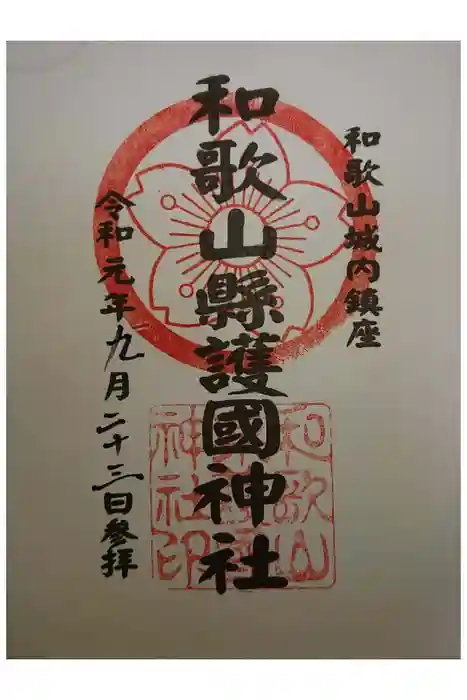 和歌山城内鎮座
和歌山縣護國神社
令和元年九月二十三日参拝
和歌山
神社印